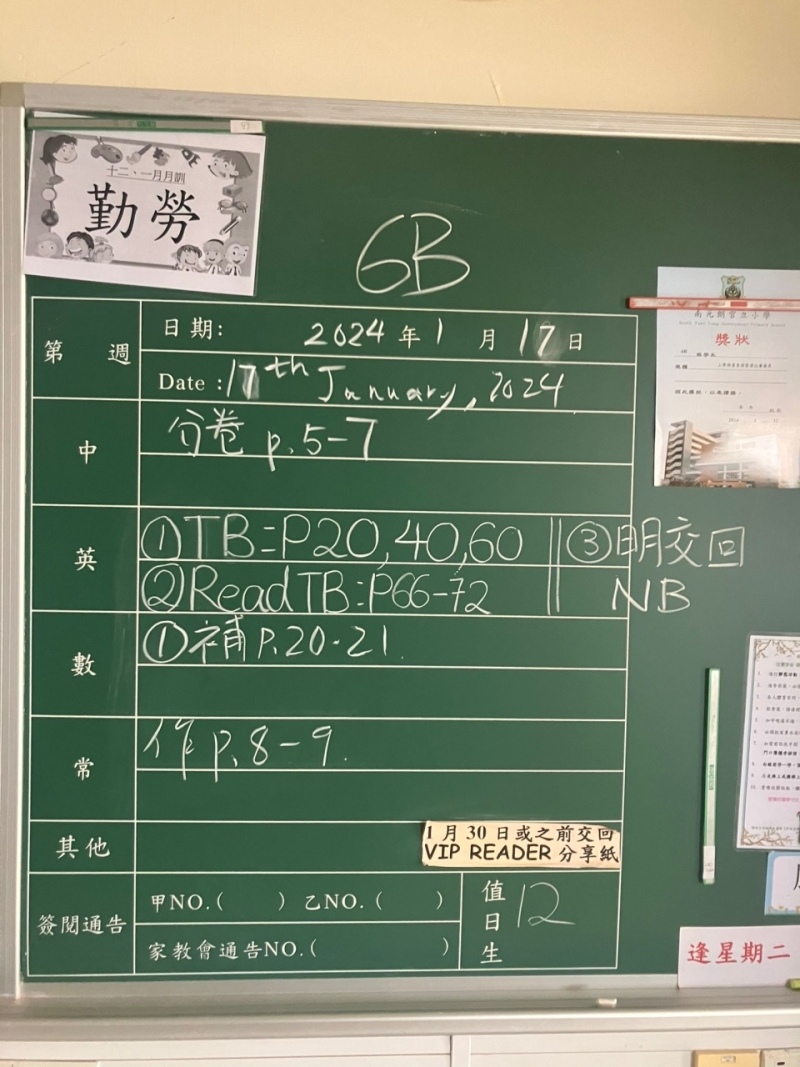 十二、一月月訓
勤勞
6B
第 週
日期: 2024年1月17日
Date :17th January, 2024
中
分卷 p.5-7
英
①TB:P20,40,60
②Read TB:P66-72
③明交回
NB
數
①補P.20-21.
常
作p.8-9.
其他
1月30日或之前交回
VIP READER 分享紙
簽閱通告
甲NO.( ) 乙NO.( )
家教會通告NO.( )
值日生 12
獎狀
逢星期二